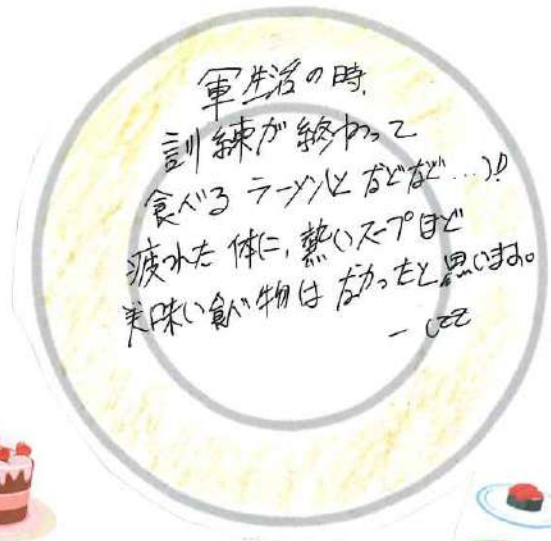 軍生活の時、
訓練が終わって
食べる ラーメンと などなど…)!!
疲れた 体に、熱いスープほど
美味い食べ物は なかったと 思います。